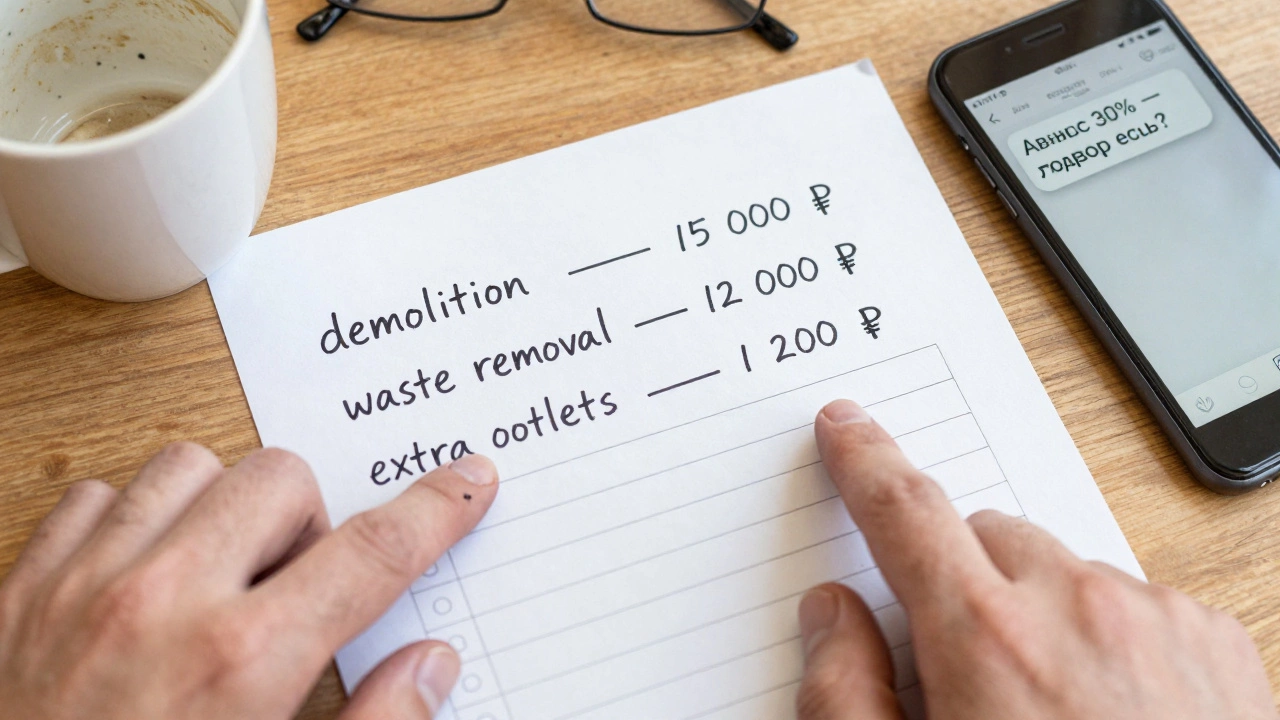 demolition — 15 000 ₽
waste removal — 12 000 ₽
extra ootlets — 1 200 ₽
30% —